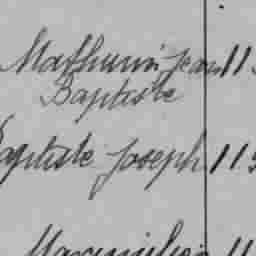 Mathurin Jean 11
Baptiste
Baptiste Joseph 11
Maximilien 11